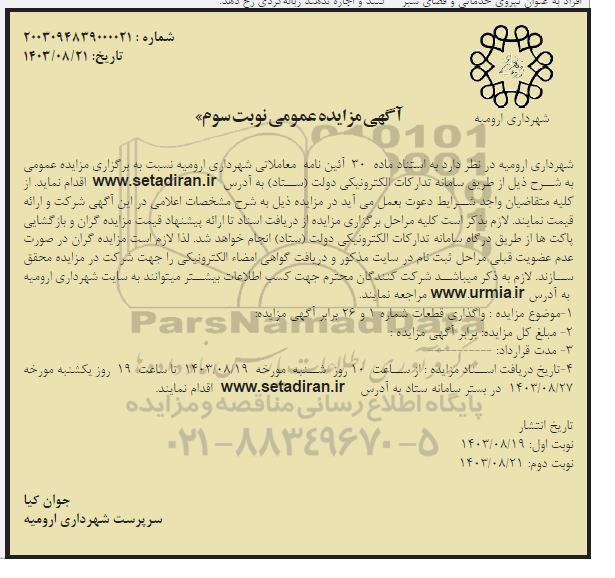 افراد به عنوان نیروی خدماتی و فضای سبز کنند و اجازه ندهند زباله‌گردی رخ دهد.
شماره : ۲۰۰۳۰۹۴۸۳۹۰۰۰۰۲۱
تاریخ: ۱۴۰۳/۰۸/۲۱
شهرداری ارومیه
آگهی مزایده عمومی نوبت سوم»
شهرداری ارومیه در نظر دارد به استناد ماده ۳۰ آئین نامه معاملاتی شهرداری ارومیه نسبت به برگزاری مزایده عمومی
به شرح ذیل از طریق سامانه تدارکات الکترونیکی دولت (ستاد) به آدرس www.setadiran.ir اقدام نماید. از
کلیه متقاضیان واجد شرایط دعوت بعمل می آید در مزایده ذیل به شرح مشخصات اعلامی در این آگهی شرکت و ارائه
قیمت نمایند. لازم بذکر است کلیه مراحل برگزاری مزایده از دریافت اسناد تا ارائه پیشنهاد قیمت مزایده گران و بازگشایی
پاکت ها از طریق درگاه سامانه تدارکات الکترونیکی دولت (ستاد) انجام خواهد شد. لذا لازم است مزایده گران در صورت
عدم عضویت قبلی مراحل ثبت نام در سایت مذکور و دریافت گواهی امضاء الکترونیکی را جهت شرکت در مزایده محقق
سازند. لازم به ذکر میباشد شرکت کنندگان محترم جهت کسب اطلاعات بیشتر میتوانند به سایت شهرداری ارومیه
به آدرس www.urmia.ir مراجعه نمایند.
۱-موضوع مزایده : واگذاری قطعات شماره ۱ و ۲۶ برابر آگهی مزایده:
۲- مبلغ کل مزایده: برابر آگهی مزایده :
۳- مدت قرارداد: -----------
۴-تاریخ دریافت اسناد مزایده : از ساعت ۱۰ روز شنبه مورخه ۱۴۰۳/۰۸/۱۹ تا ساعت ۱۹ روز یکشنبه مورخه
۱۴۰۳/۰۸/۲۷ در بستر سامانه ستاد به آدرس www.setadiran.ir اقدام نمایند.
ParsNamadData
پایگاه اطلاع رسانی مناقصه و مزایده
۰۲۱-۸۸۳۴۹۶۷۰-۵
تاریخ انتشار
نوبت اول: ۱۴۰۳/۰۸/۱۹
نوبت دوم: ۱۴۰۳/۰۸/۲۱
جوان کیا
سرپرست شهرداری ارومیه